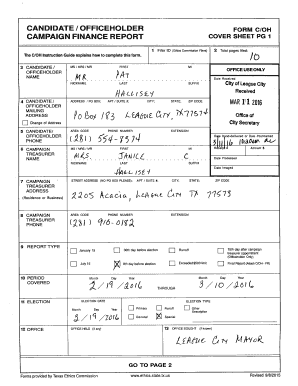 CANDIDATE / OFFICEHOLDER
CAMPAIGN FINANCE REPORT
FORM C/OH
COVER SHEET PG 1
The C/OH Instruction Guide explains how to complete this form.
1 Filer ID (Ethics Commission Filers)
2 Total pages filed:
10
3 CANDIDATE / OFFICEHOLDER NAME
MS / MRS / MR FIRST MI
MR PAT
NICKNAME LAST SUFFIX
HALLISEY
OFFICE USE ONLY
Date Received
City of League City
Received
MAR 11 2016
Office of
City Secretary
4 CANDIDATE / OFFICEHOLDER MAILING ADDRESS
Change of Address
ADDRESS / PO BOX; APT / SUITE #; CITY; STATE; ZIP CODE
PO BOX 183 LEAGUE CITY, TX 77574
5 CANDIDATE / OFFICEHOLDER PHONE
AREA CODE PHONE NUMBER EXTENSION
(281) 554-8374
Date Hand-delivered or Date Postmarked
3/11/16 10:30am
Amount $
6 CAMPAIGN TREASURER NAME
MS / MRS / MR FIRST MI
MRS. JANICE C
NICKNAME LAST SUFFIX
HALLISEY
Date Processed
Date Imaged
7 CAMPAIGN TREASURER ADDRESS
(Residence or Business)
STREET ADDRESS (NO PO BOX PLEASE); APT / SUITE #; CITY; STATE; ZIP CODE
2205 Acacia, LEAGUE CITY TX 77573
8 CAMPAIGN TREASURER PHONE
AREA CODE PHONE NUMBER EXTENSION
(281) 910-0182
9 REPORT TYPE
January 15
30th day before election
Runoff
15th day after campaign treasurer appointment (Officeholder Only)
July 15
8th day before election
Exceeded $500 limit
Final Report (Attach C/OH - FR)
10 PERIOD COVERED
Month Day Year
2/19/2016
THROUGH
Month Day Year
3/10/2016
11 ELECTION
ELECTION DATE
Month Day Year
2/19/2016
ELECTION TYPE
Primary
Runoff
Other Description
General
Special
12 OFFICE
OFFICE HELD (if any)
13 OFFICE SOUGHT (if known)
LEAGUE CITY MAYOR
GO TO PAGE 2
Forms provided by Texas Ethics Commission
www.ethics.state.tx.us
Revised 9/8/2015